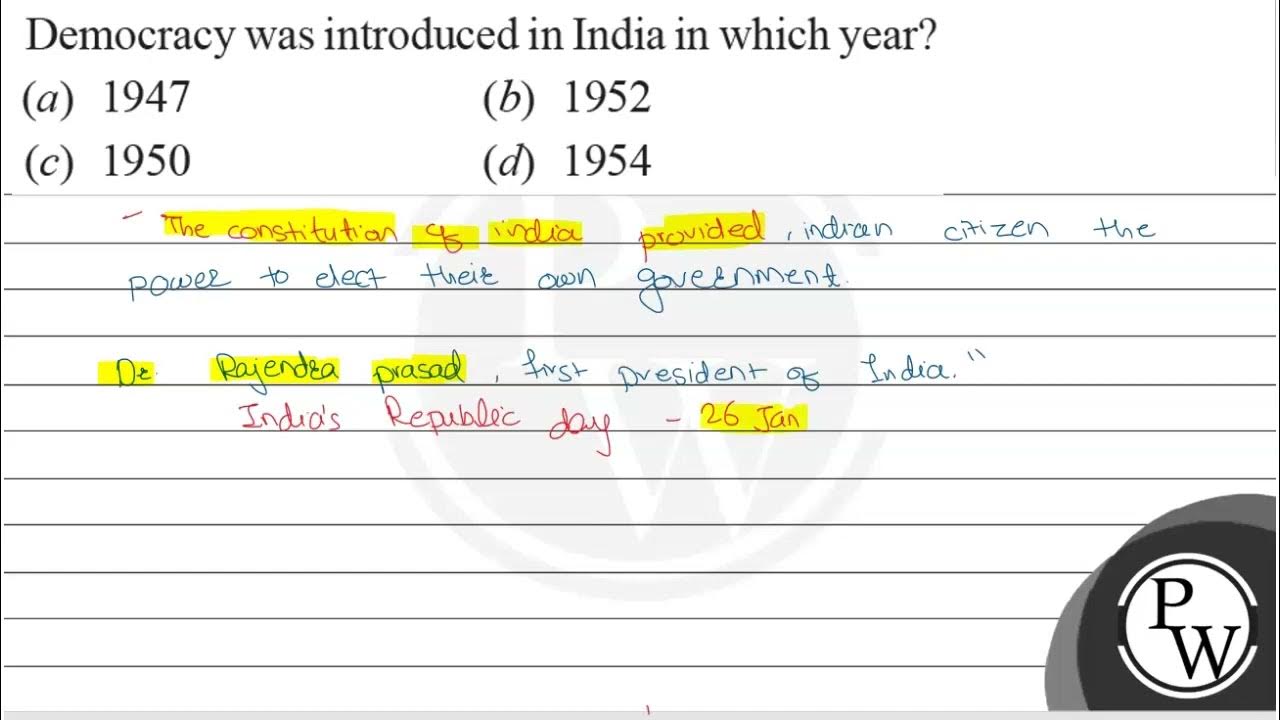 Democracy was introduced in India in which year?
(a) 1947 (b) 1952
(c) 1950 (d) 1954
- The constitution of india provided, indian citizen the
power to elect their own government.
Dr. Rajendra prasad, first president of India."
India's Republic day - 26 Jan
PW
PW